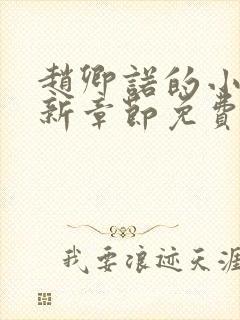 趙卿諾的小
新章節免費
我要浪迹天涯